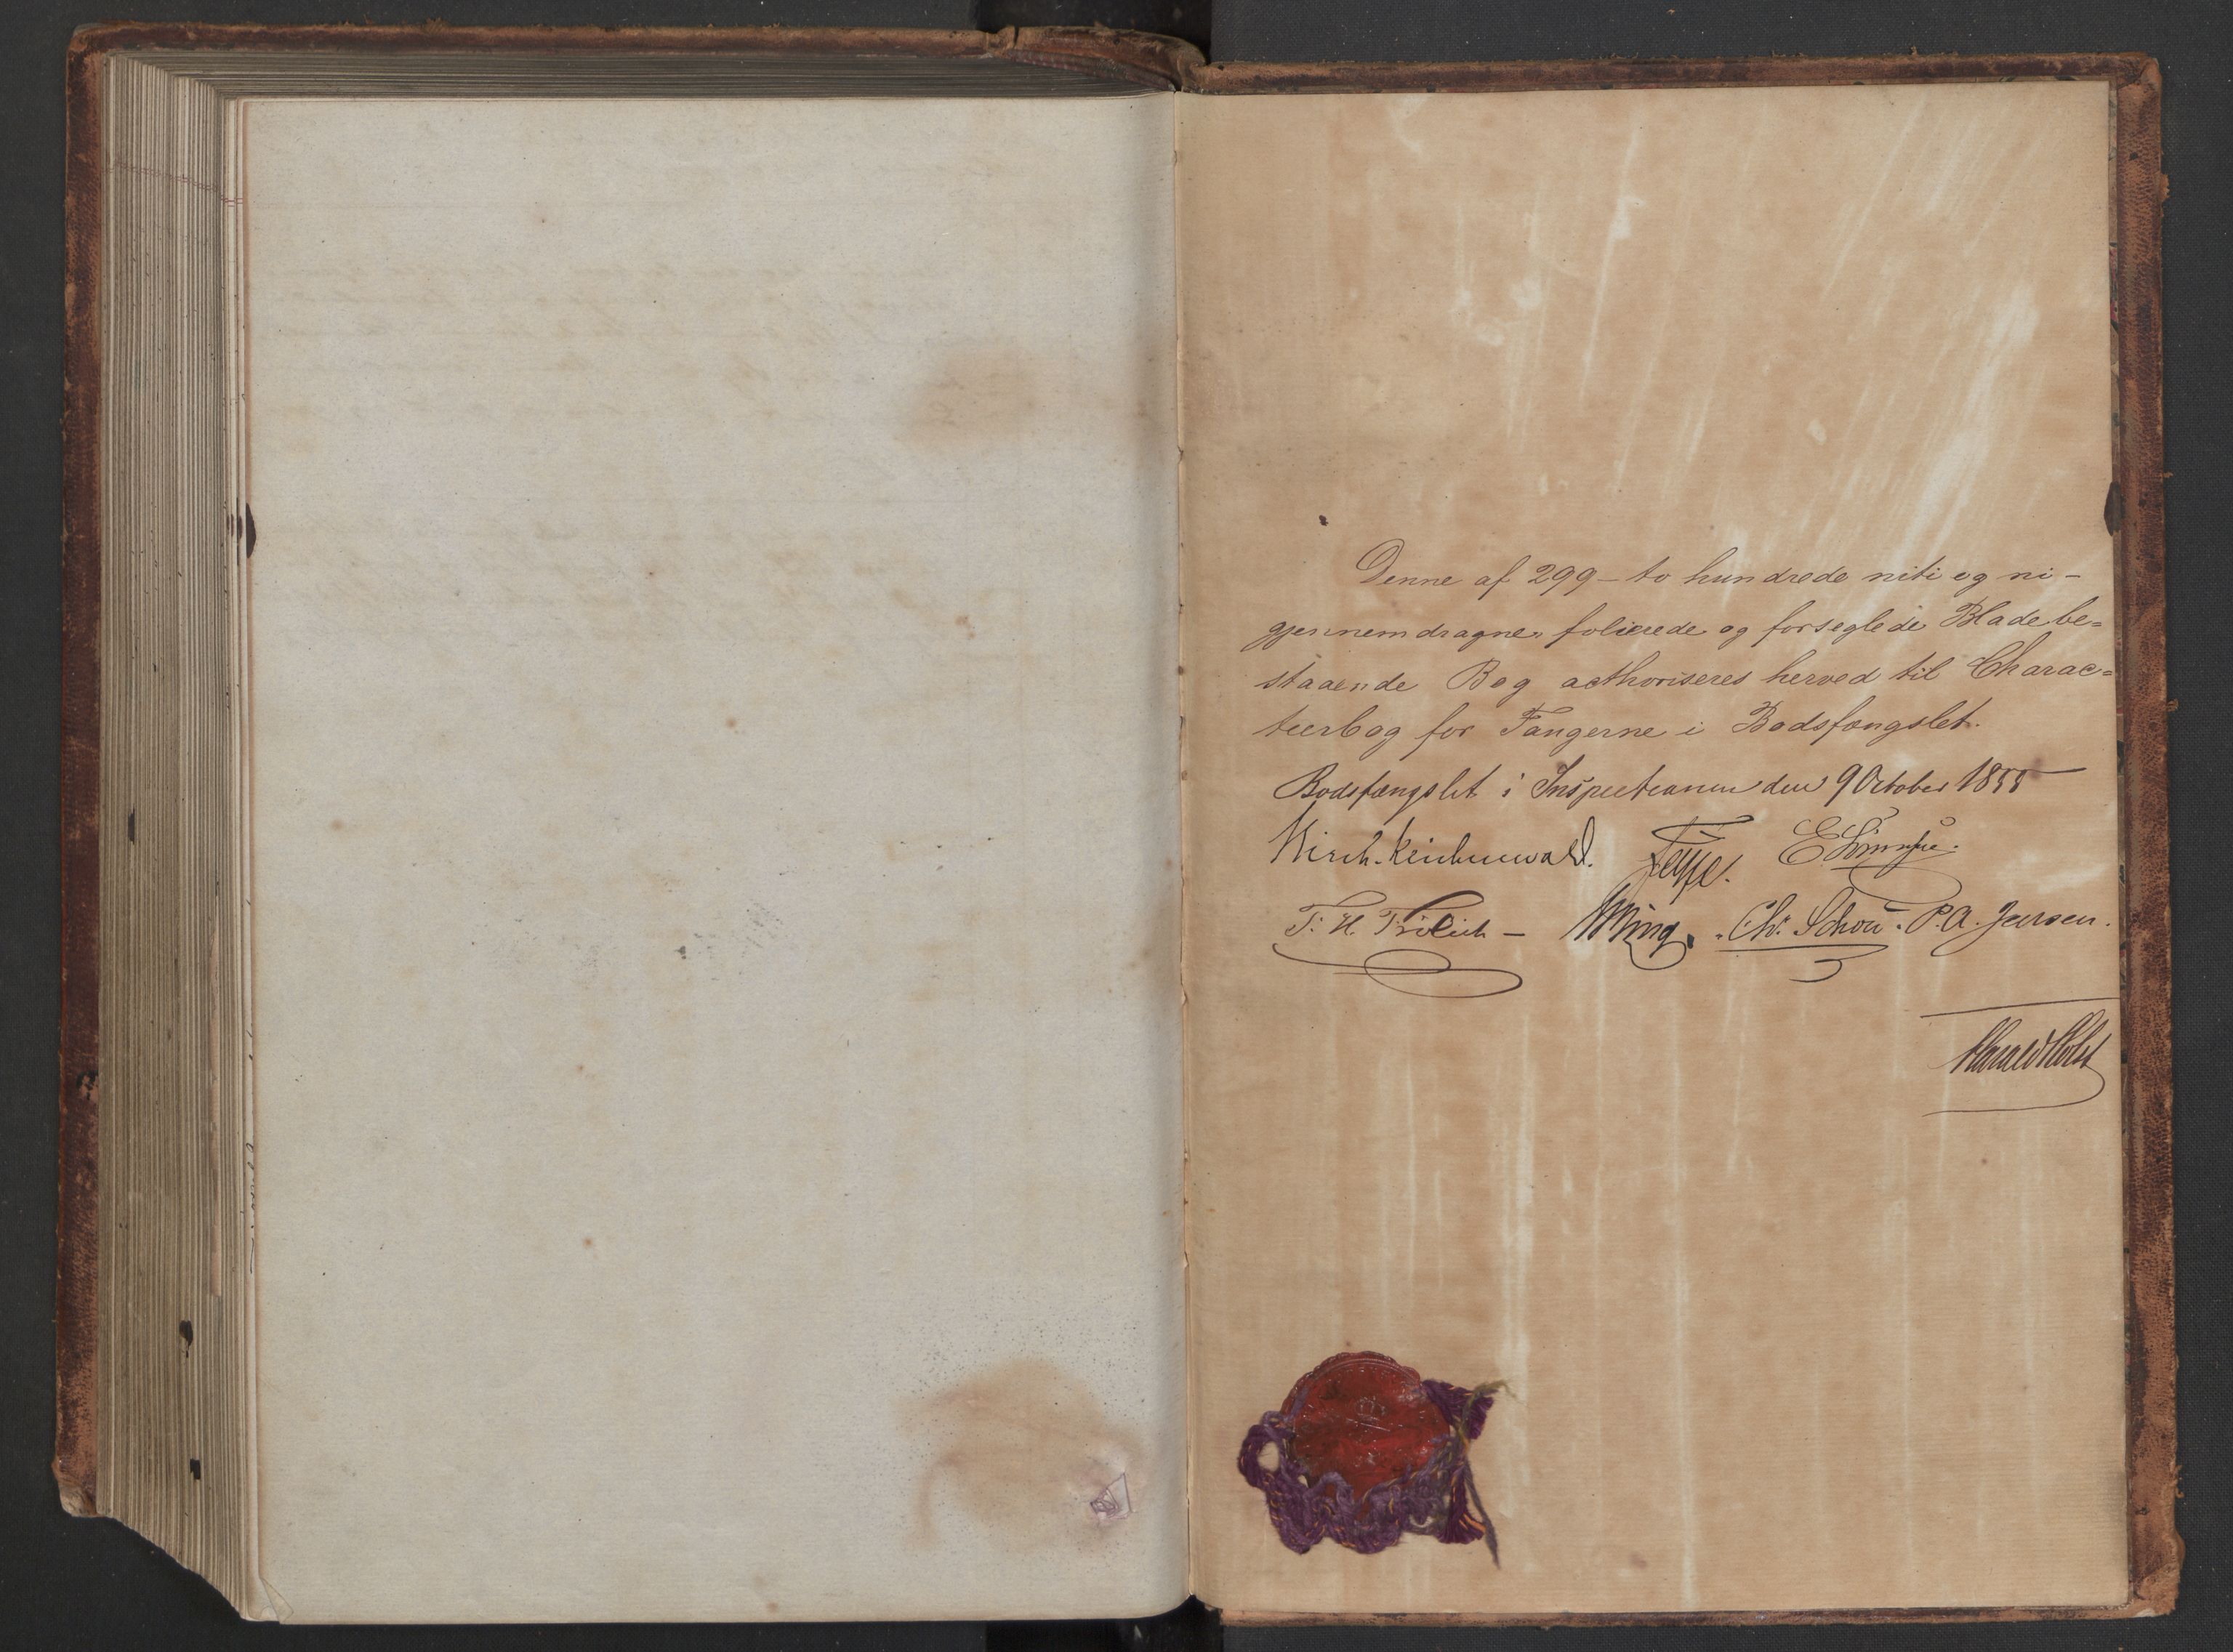 Denne af 299 – to hundrede niti og ni –
gjennemdragne, folierede og forseglede Blade be=
staaende Bog acthoriseres herved til Charac=
teerbog for Fangerne i Bodsfængslet.
Bodsfængslet i Inspectionen den 9 October 1855
Hirch. Reichenwald.
F. H. Frölich – Ming. Chr. Schou. P. A. Jensen.
Harald Holst